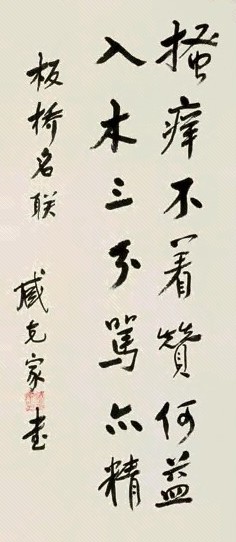 搔痒不着赞何益
入木三分骂亦精
板桥名联 臧克家书